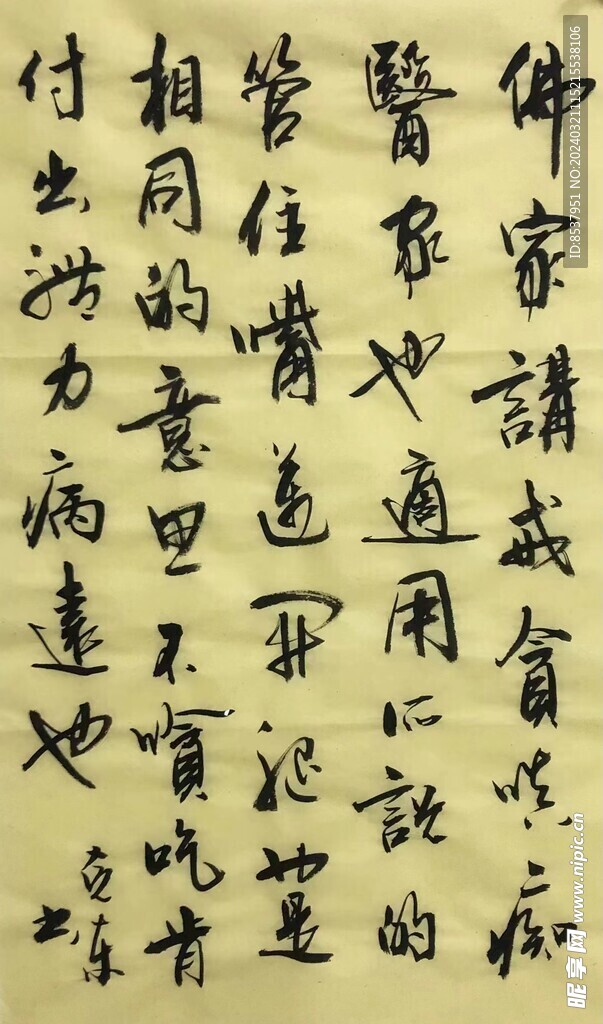 佛家講戒貪嗔痴
醫家也適用所說的
管住嘴邁開腿也是
相同的意思不嗿吃肯
付出體力病遠也
克東
书
ID:8537951 NO:20240321115215538106
昵享网 www.nipic.cn